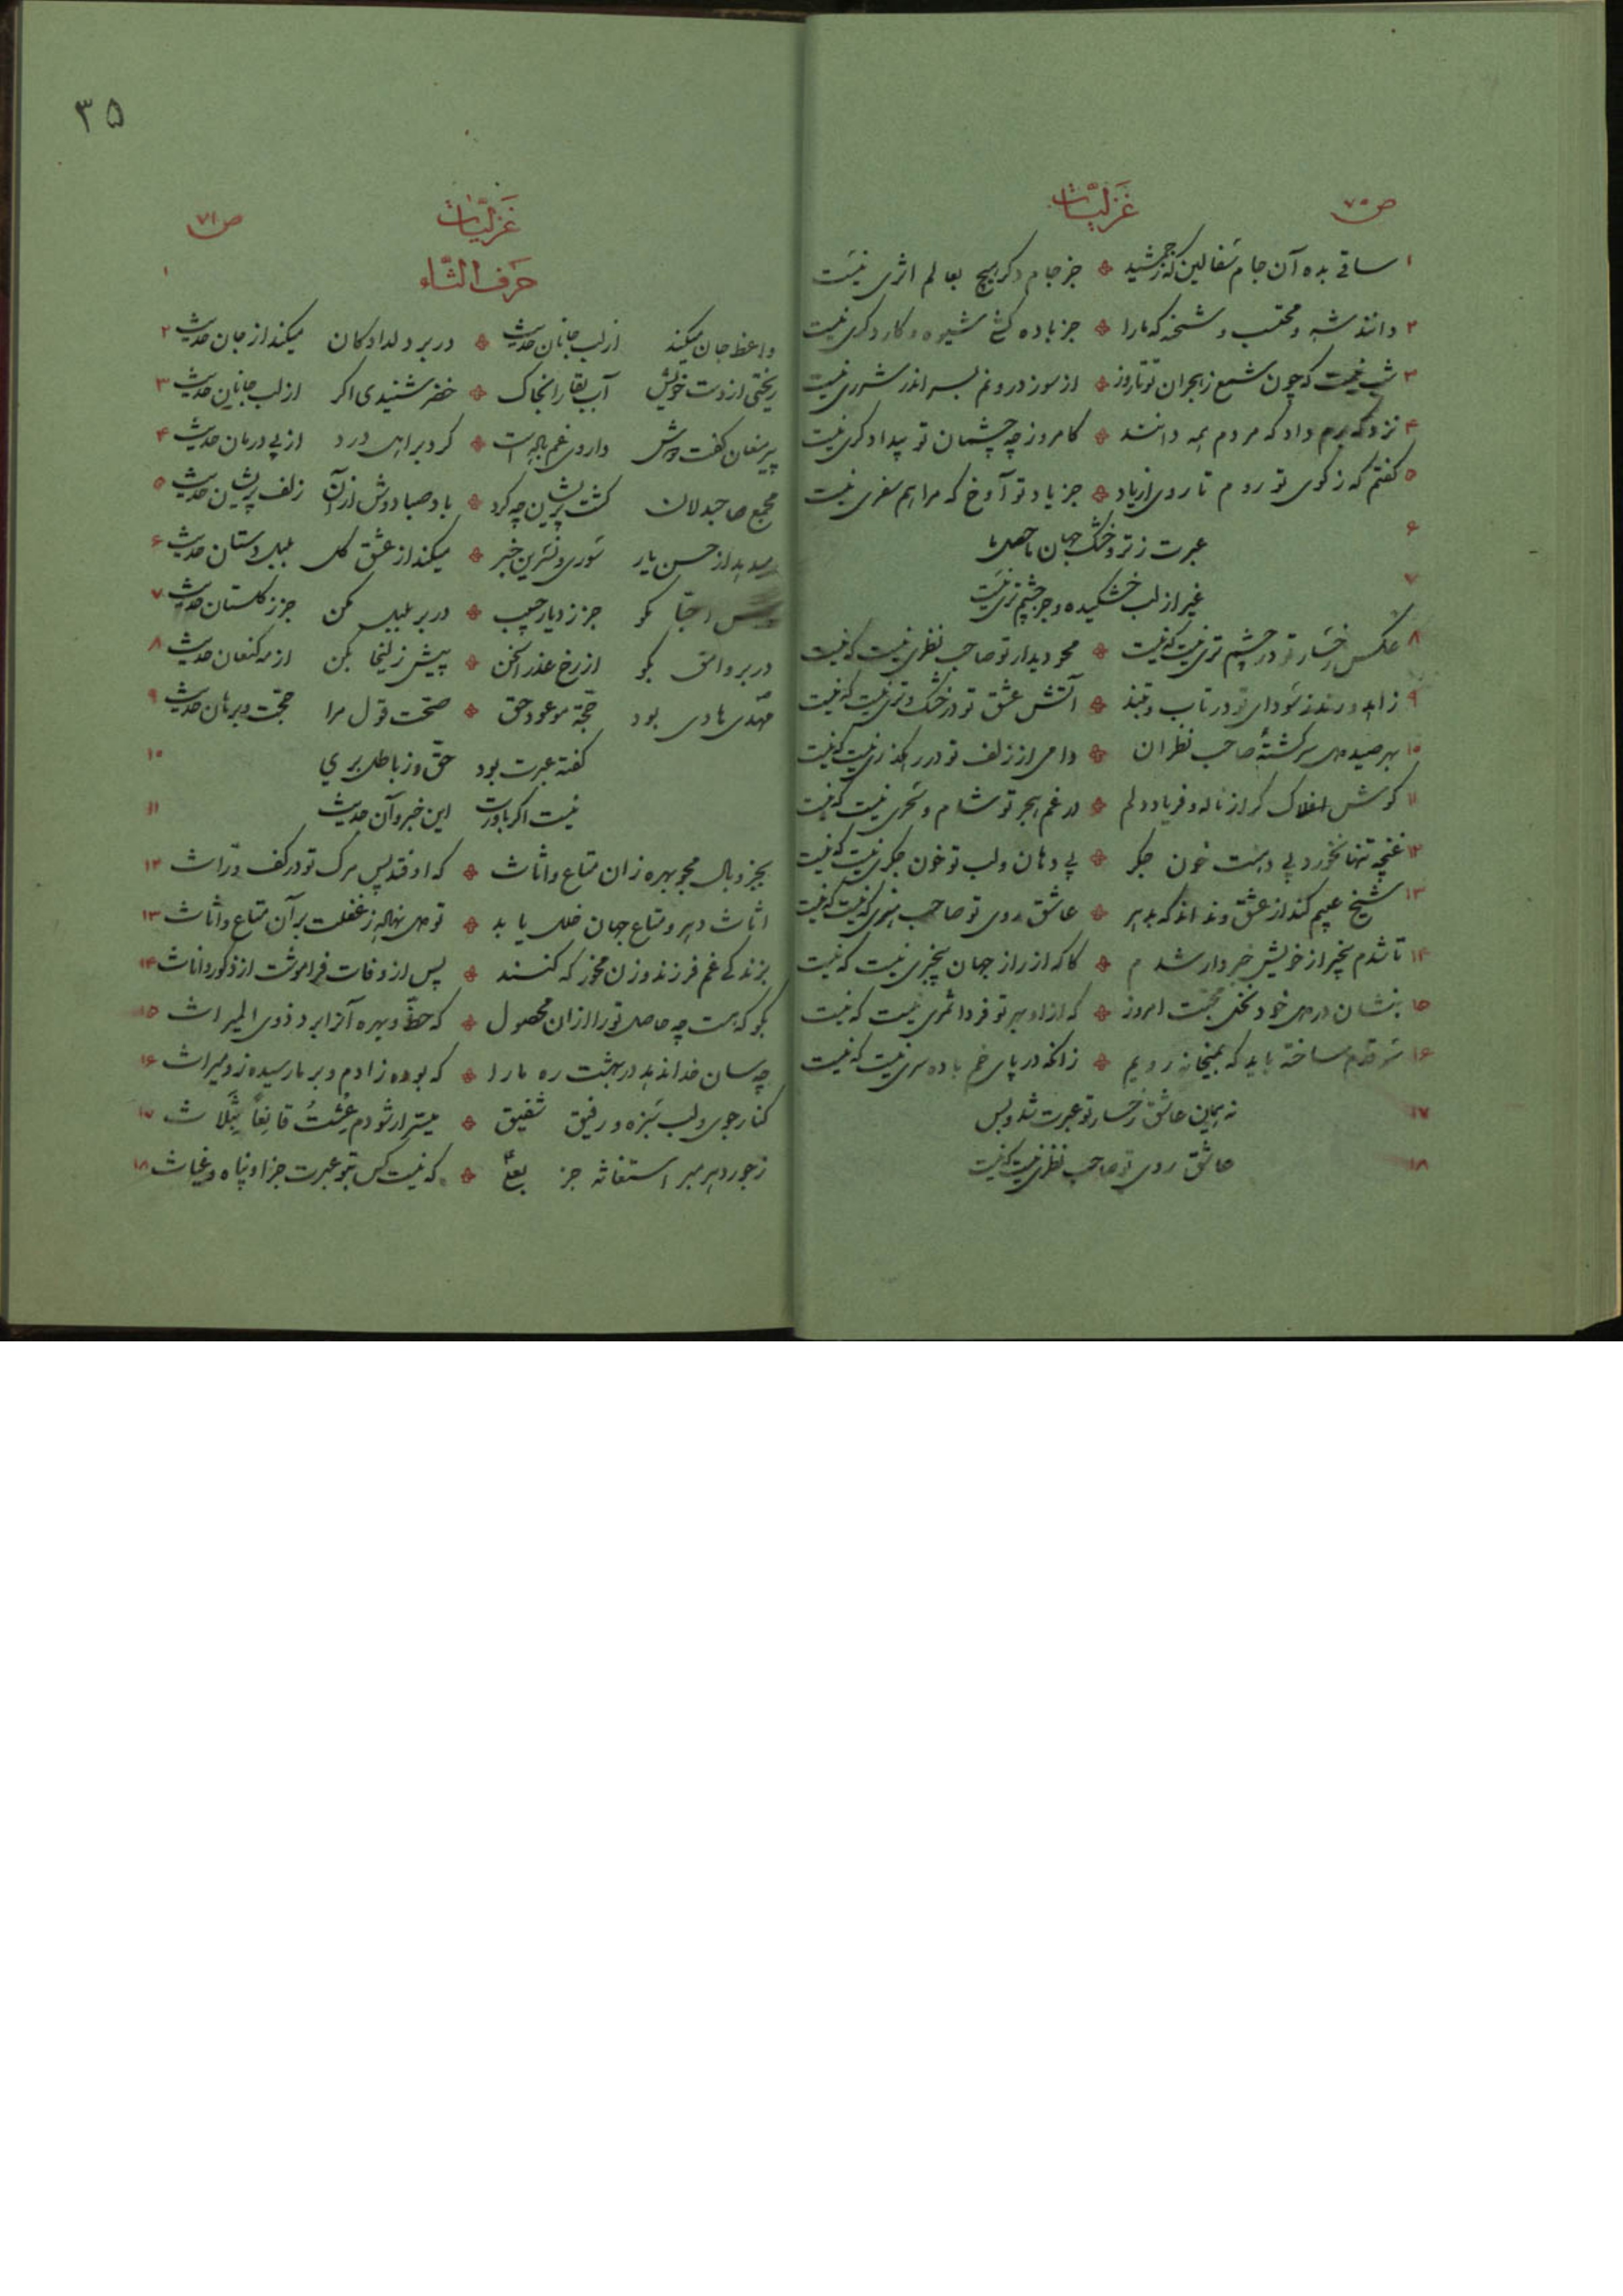 ص ۷۰
غزلیّات
۱ ساقی بده آن جام سفالین که ز جمشید ❖ جز جام دکر هیچ بعالم اثری نیست
۲ دانند شه و محتسب و شحنه که ما را ❖ جز باده کشی شیوه و کار دکری نیست
۳ شب نیست که چون شمع ز هجران تو تا روز ❖ از سوز درونم بسر اندر شرری نیست
۴ نزد که برم داد که مردم همه دانند ❖ کامروز چه چشمان تو بیدادکری نیست
۵ کفتم که ز کوی تو روم تا روی از یاد ❖ جز یاد تو آوخ که مرا همسفری نیست
۶ عبرت ز تر و خشک جهان ما حصل ما
۷ غیر از لب خشکیده و جز چشم تری نیست
۸ عکس رخسار تو در چشم تری نیست که نیست ❖ محو دیدار تو صاحب نظری نیست که نیست
۹ زاهد و رند ز سودای تو در تاب و تبند ❖ آتش عشق تو در خشک و تری نیست که نیست
۱۰ بهر صید دل سرکشتهٔ صاحب نظران ❖ دامی از زلف تو در رهکذری نیست که نیست
۱۱ کوش افلاک کر از ناله و فریاد دلم ❖ در غم هجر تو شام و سحری نیست که نیست
۱۲ غنچه تنها نخورد بی دهنت خون جکر ❖ بی دهان و لب تو خون جکری نیست که نیست
۱۳ شیخ عیبم کند از عشق و نداند که بدهر ❖ عاشق روی تو صاحب هنری نیست که نیست
۱۴ تا شدم بیخبر از خویش خبردار شدم ❖ کاکه از راز جهان بیخبری نیست که نیست
۱۵ بنشان در دل خود نخل محبّت امروز ❖ که از او بهر تو فردا ثمری نیست که نیست
۱۶ سر قدم ساخته باید که بمیخانه رویم ❖ زانکه در پای خم باده سری نیست که نیست
۱۷ نه همین عاشق رخسار تو عبرت شد و بس
۱۸ عاشق روی تو صاحب نظری نیست که نیست
۳۵
ص ۷۱
غزلیّات
۱ حرف الثّاء
واعظ جان میکند از لب جانان حدیث ❖ در بر دلدادکان میکند از جان حدیث ۲
ریختی از دست خویش آب بقا را بخاک ❖ خضر شنیدی اکر از لب جانان حدیث ۳
پیر مغان کفت دوش داروی غم باده است ❖ کرد بر اهل درد از پی درمان حدیث ۴
مجمع صاحبدلان کشت پریشان چه کرد ❖ باد صبا دوش از آن زلف پریشان حدیث ۵
میدهد از حسن یار سوری و نسرین خبر ❖ میکند از عشق کل بلبل دستان حدیث ۶
احبّا مکو جز ز دیار حبیب ❖ در بر بلبل مکن جز ز کلستان حدیث ۷
در بر وامق بکو از رخ عذرا سخن ❖ پیش زلیخا بکن از مه کنعان حدیث ۸
مهدی هادی بود حجّة موعود حق ❖ صحّت قول مرا حجّت و برهان حدیث ۹
کفتهٔ عبرت بود حقّ و ز باطل بری ۱۰
نیست اکر باورت این خبر و آن حدیث ۱۱
بجز وبال مجو بهره زان متاع و اثاث ❖ که اوفتد پس مرک تو در کف ورّاث ۱۲
اثاث دهر و متاع جهان خلل یابد ❖ تو دل نهاله ز غفلت بر آن متاع و اثاث ۱۳
بزندکی غم فرزند و زن مخور که کنند ❖ پس از وفات فراموشت از ذکور و اناث ۱۴
بکو که هست چه حاصل تو را از آن محصول ❖ که حظّ و بهره آنرا برد ذوی المیراث ۱۵
چه سان خدا ندهد در بهشت ره ما را ❖ که بوده ز آدم و بر ما رسیده زو میراث ۱۶
کنار جوی و لب سبزه و رفیق شفیق ❖ میسّر ار شودم عِشتُ قانِعاً بِثَلاث ۱۷
ز جور دهر مبر استغاثه جز بعلیّ ❖ که نیست کس بتو عبرت جز او پناه و غیاث ۱۸